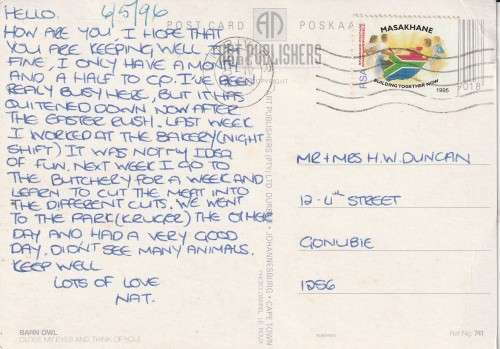 HELLO. 6/5/96
HOW ARE YOU, I HOPE THAT
YOU ARE KEEPING WELL. I'M
FINE, I ONLY HAVE A MONTH
AND A HALF TO GO. I'VE BEEN
REALY BUSY HERE, BUT IT HAS
QUITENED DOWN NOW AFTER
THE EASTER RUSH. LAST WEEK
I WORKED AT THE BAKERY (NIGHT
SHIFT) IT WAS NOT MY IDEA
OF FUN. NEXT WEEK I GO TO
THE BUTCHERY FOR A WEEK AND
LEARN TO CUT THE MEAT INTO
THE DIFFERENT CUTS. WE WENT
TO THE PARK (KRUGER) THE OTHER
DAY AND HAD A VERY GOOD
DAY. DIDN'T SEE MANY ANIMALS.
KEEP WELL
LOTS OF LOVE
NAT.
BARN OWL
CLOSE MY EYES AND THINK OF YOU
POST CARD
POSKAART
ART PUBLISHERS
ART PUBLISHERS (PTY) LTD DURBAN • JOHANNESBURG • CAPE TOWN
MASAKHANE
BUILDING TOGETHER NOW
RSA
1995
MR + MRS H.W. DUNCAN
12 - 4TH STREET
GONUBIE
5256
Ref No: 741